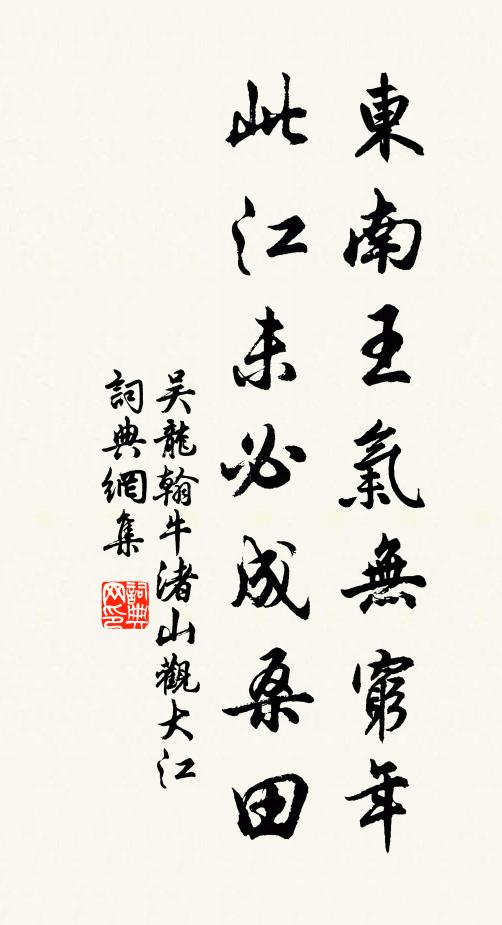 東南王氣無窮年
此江未必成桑田
吴龍翰牛渚山觀大江
詞典網集
詞典网印